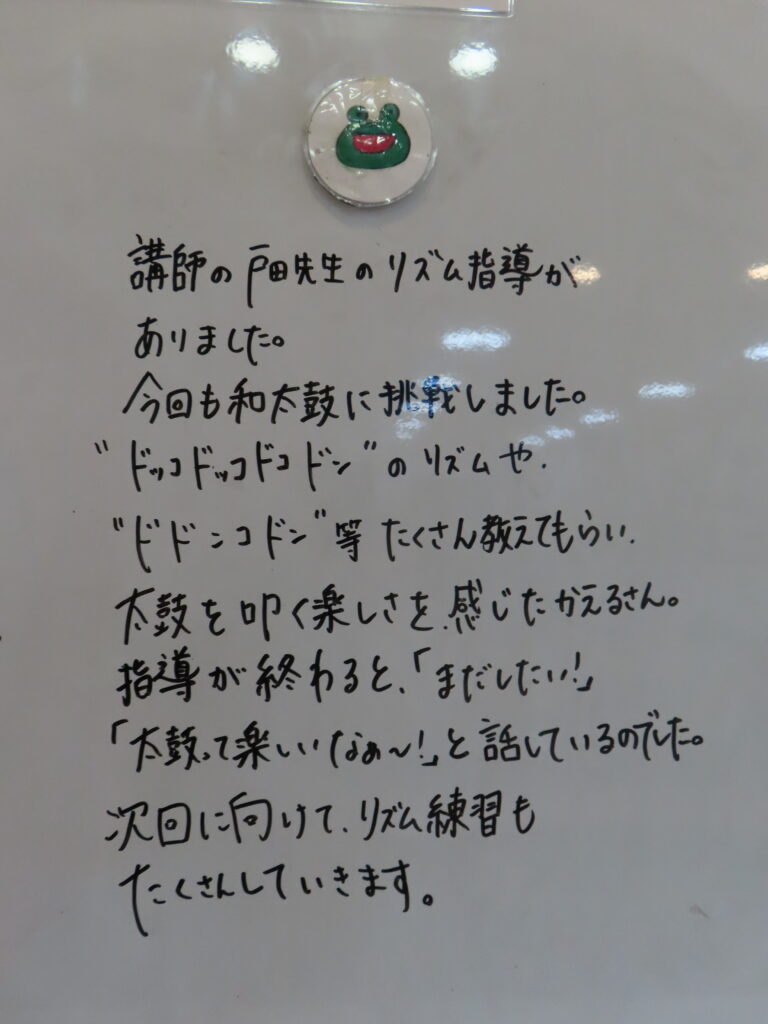 講師の戸田先生のリズム指導が
ありました。
今回も和太鼓に挑戦しました。
"ドッコドッコドコドン"のリズムや、
"ドドンコドン"等たくさん教えてもらい、
太鼓を叩く楽しさを感じたかえるさん。
指導が終わると、「まだしたい!」
「太鼓って楽しいなぁ〜!」と話しているのでした。
次回に向けて、リズム練習も
たくさんしていきます。